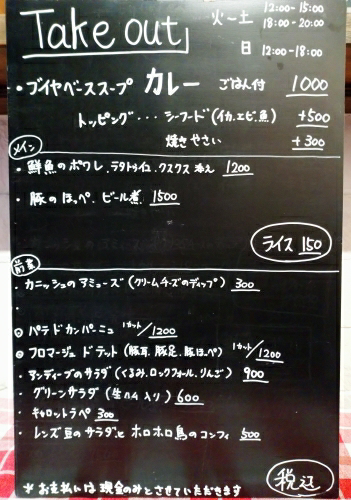 Take out
火〜土 12:00-15:00
18:00-20:00
日 12:00-18:00
・ブイヤベーススープ カレー ごはん付 1000
トッピング・・・シーフード(イカ、エビ、魚) +500
焼きやさい +300
メイン
・鮮魚のポワレ、ラタトゥイユ、クスクス添え 1200
・豚のほっぺ、ビール煮 1500
ライス 150
前菜
・カニッシュのアミューズ(クリームチーズのディップ) 300
◎パテドカンパーニュ 1カット/1200
◎フロマージュドテット(豚耳、豚足、豚ほっぺ) 1カット/1200
・アンディーブのサラダ(くるみ、ロックフォール、りんご) 900
・グリーンサラダ(生ハム入り) 600
・キャロットラペ 300
・レンズ豆のサラダとホロホロ鳥のコンフィ 500
税込
*お支払いは現金のみとさせていただきます